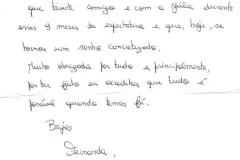 que teve comigo e com a Júlia durante
esses 9 meses de expectativa e que, hoje, se
tornou um sonho concretizado.
Muito obrigada por tudo e, principalmente,
por ter feito eu acreditar que tudo é
possível quando temos fé.
Beijos
Fernanda,